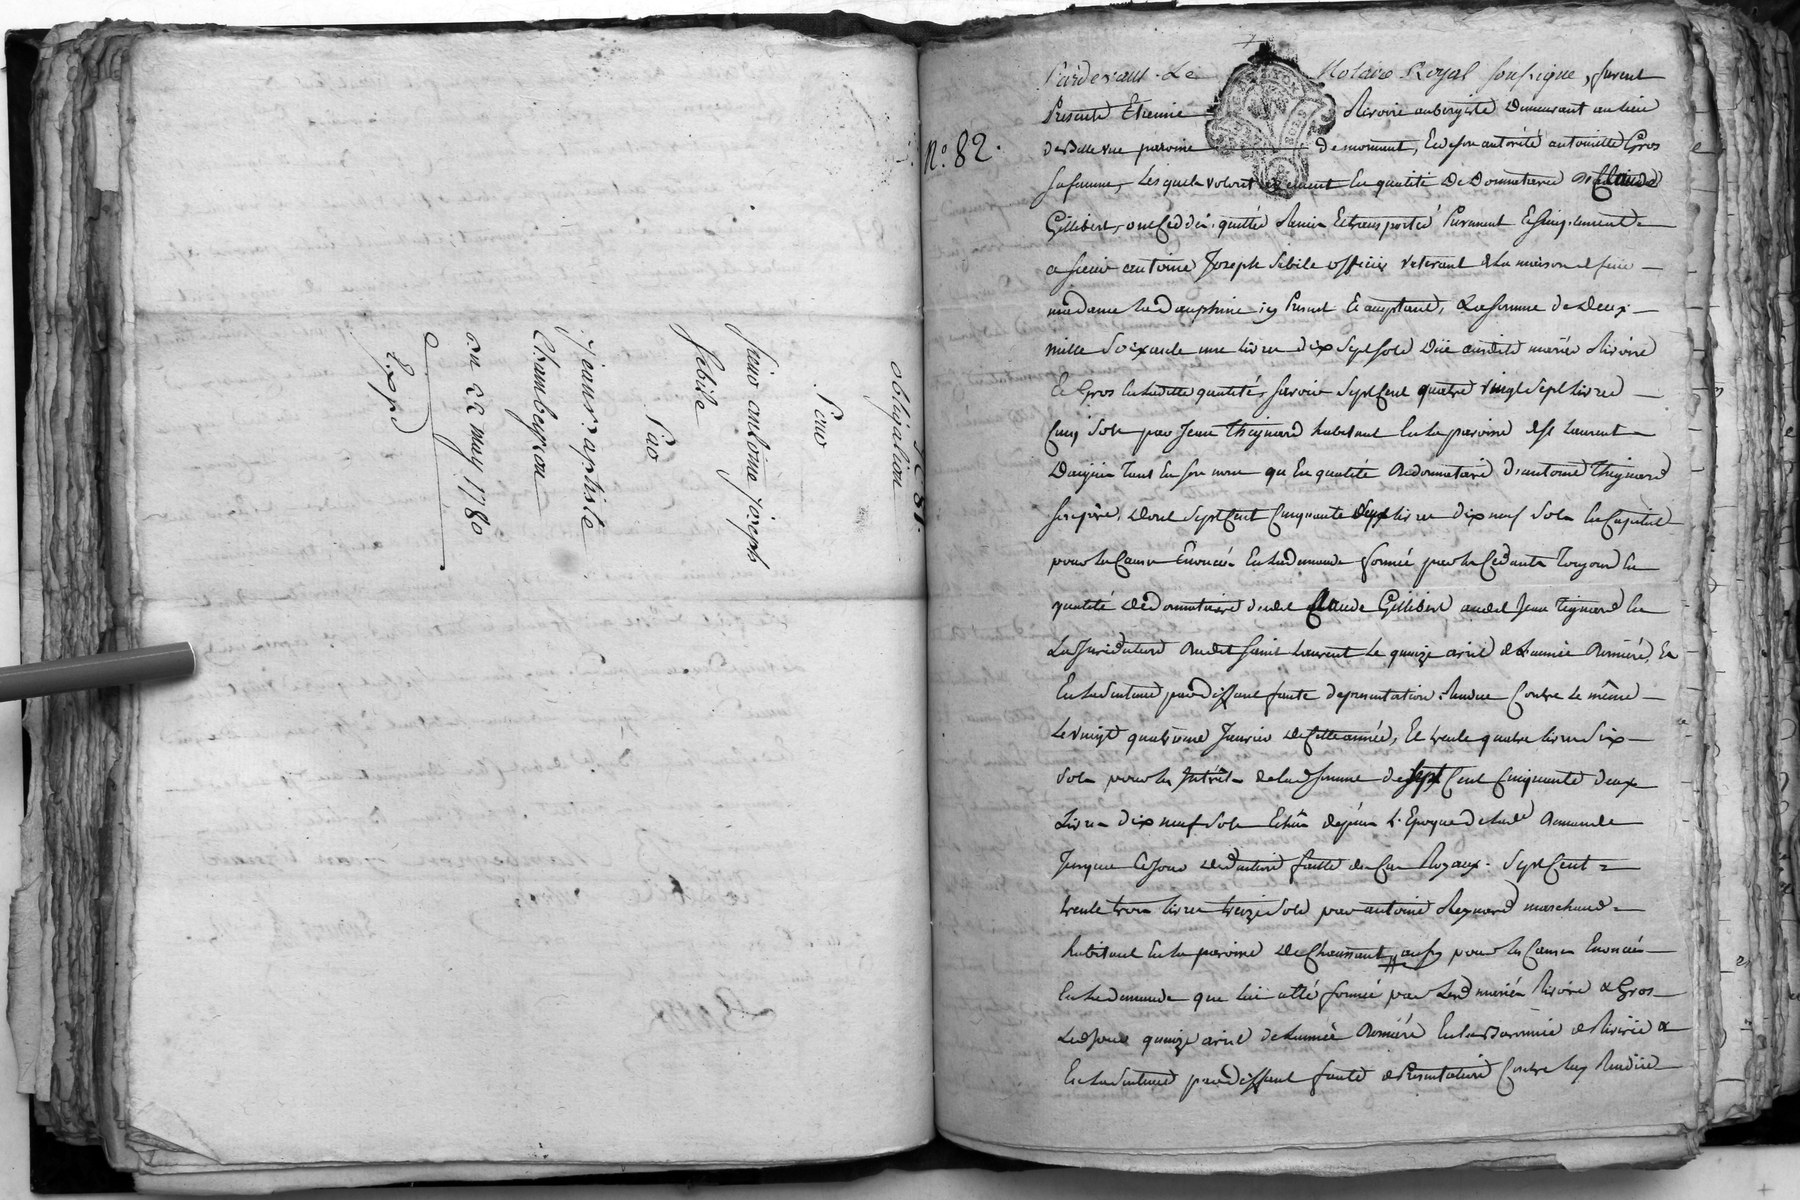 N.° 81.
obligation
Pour
sieur antoine Joseph
Sebile
Par
Jean Baptiste
Chambeyron
du 22 may 1780
Exp.é
N.° 82.
Pardevant Le Notaire Royal soussigné, furent
Presents Etienne Rivoire aubergiste Demeurant au lieu
de Bellevue paroisse de mornant, Et de son autorité antoinette Gros
sa femme, Lesquels volontairement En qualité De Donnataires de Claude
Gillibert, ont Ceddé, quitté Remis Et transporté Purement Et Simplement
a sieur antoine Joseph Sebile officier veterant de La maison de feüe
madame La Dauphine icy Present Et acceptant, La somme de Deux
mille Soixante une livres dix Sept sols Düe auxdits mariés Rivoire
Et Gros En Ladite qualité, savoir Sept Cent quatre vingt Sept livres
Cinq Sols par Jean Theynard habitant En La paroisse de St Laurent
Dagnin Tant En son nom qu En qualité de donnataire D'antoine Theynard
son père, Dont Sept Cent Cinquante deux livres dix neuf Sols En Capital
pour les Causes Enoncées En La demande formée par les Cedants Toujours En
qualité de donnataires dudit Claude Gillibert audit Jean Teynard En
La Juridiction dudit saint Laurent Le quinze avril de L'année derniere, Et
En La Sentence par deffaut faute de presentation Rendüe Contre Le même
Le vingt quatrieme Janvier de Cette année, Et trente quatre livres Six
Sols pour les Intérêts de lad. somme de Sept Cent Cinquante deux
Livres dix neuf Sols Echûs depuis L'Epoque de lad.e demande
Jusques Ce Jour deduction faitte des Cas Royaux. Sept Cent
trente trois livres treize Sols par antoine Reynard marchand
habitant En La paroisse de Chaussant aussy pour les Causes Enoncées
En La demande que lui a Eté formée par Lesd. mariés Rivoire & Gros
Led. Jour quinze avril de L'année derniére En La Baronnie de Riverie &
En La Sentence par deffaut faute de Presentation Contre luy Rendüe